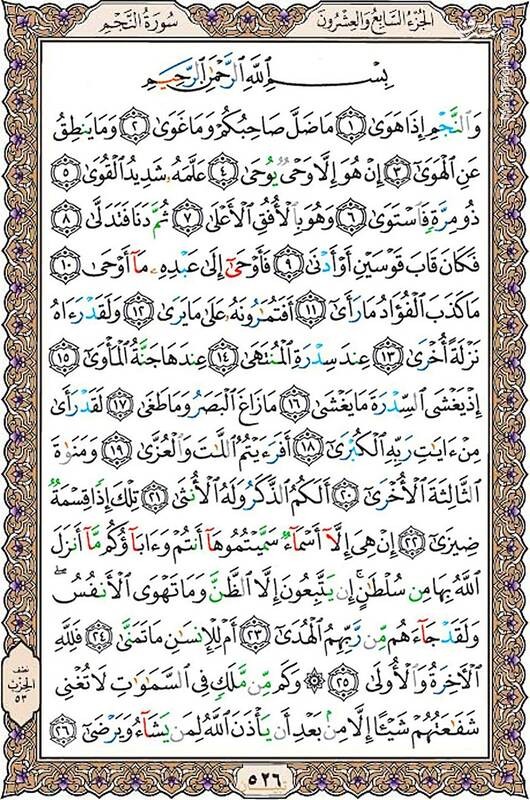 الجُزءُ السَّابِعُ وَالعِشْرُونَ
سُورَةُ النَّجْمِ
بِسْمِ ٱللَّهِ ٱلرَّحْمَٰنِ ٱلرَّحِيمِ
وَٱلنَّجْمِ إِذَا هَوَىٰ ١ مَا ضَلَّ صَاحِبُكُمْ وَمَا غَوَىٰ ٢ وَمَا يَنطِقُ
عَنِ ٱلْهَوَىٰٓ ٣ إِنْ هُوَ إِلَّا وَحْىٌ يُوحَىٰ ٤ عَلَّمَهُۥ شَدِيدُ ٱلْقُوَىٰ ٥
ذُو مِرَّةٍ فَٱسْتَوَىٰ ٦ وَهُوَ بِٱلْأُفُقِ ٱلْأَعْلَىٰ ٧ ثُمَّ دَنَا فَتَدَلَّىٰ ٨
فَكَانَ قَابَ قَوْسَيْنِ أَوْ أَدْنَىٰ ٩ فَأَوْحَىٰٓ إِلَىٰ عَبْدِهِۦ مَآ أَوْحَىٰ ١٠
مَا كَذَبَ ٱلْفُؤَادُ مَا رَأَىٰٓ ١١ أَفَتُمَٰرُونَهُۥ عَلَىٰ مَا يَرَىٰ ١٢ وَلَقَدْ رَءَاهُ
نَزْلَةً أُخْرَىٰ ١٣ عِندَ سِدْرَةِ ٱلْمُنتَهَىٰ ١٤ عِندَهَا جَنَّةُ ٱلْمَأْوَىٰٓ ١٥
إِذْ يَغْشَى ٱلسِّدْرَةَ مَا يَغْشَىٰ ١٦ مَا زَاغَ ٱلْبَصَرُ وَمَا طَغَىٰ ١٧ لَقَدْ رَأَىٰ
مِنْ ءَايَٰتِ رَبِّهِ ٱلْكُبْرَىٰٓ ١٨ أَفَرَءَيْتُمُ ٱللَّٰتَ وَٱلْعُزَّىٰ ١٩ وَمَنَوٰةَ
ٱلثَّالِثَةَ ٱلْأُخْرَىٰٓ ٢٠ أَلَكُمُ ٱلذَّكَرُ وَلَهُ ٱلْأُنثَىٰ ٢١ تِلْكَ إِذًا قِسْمَةٌ
ضِيزَىٰٓ ٢٢ إِنْ هِىَ إِلَّآ أَسْمَآءٌ سَمَّيْتُمُوهَآ أَنتُمْ وَءَابَآؤُكُم مَّآ أَنزَلَ
ٱللَّهُ بِهَا مِن سُلْطَٰنٍ ۚ إِن يَتَّبِعُونَ إِلَّا ٱلظَّنَّ وَمَا تَهْوَى ٱلْأَنفُسُ ۖ
وَلَقَدْ جَآءَهُم مِّن رَّبِّهِمُ ٱلْهُدَىٰٓ ٢٣ أَمْ لِلْإِنسَٰنِ مَا تَمَنَّىٰ ٢٤ فَلِلَّهِ
ٱلْءَاخِرَةُ وَٱلْأُولَىٰ ٢٥ ۞ وَكَم مِّن مَّلَكٍ فِى ٱلسَّمَٰوَٰتِ لَا تُغْنِى
شَفَٰعَتُهُمْ شَيْـًٔا إِلَّا مِنۢ بَعْدِ أَن يَأْذَنَ ٱللَّهُ لِمَن يَشَآءُ وَيَرْضَىٰٓ ٢٦
نصف
الحِزْب
٥٣
٥٢٦